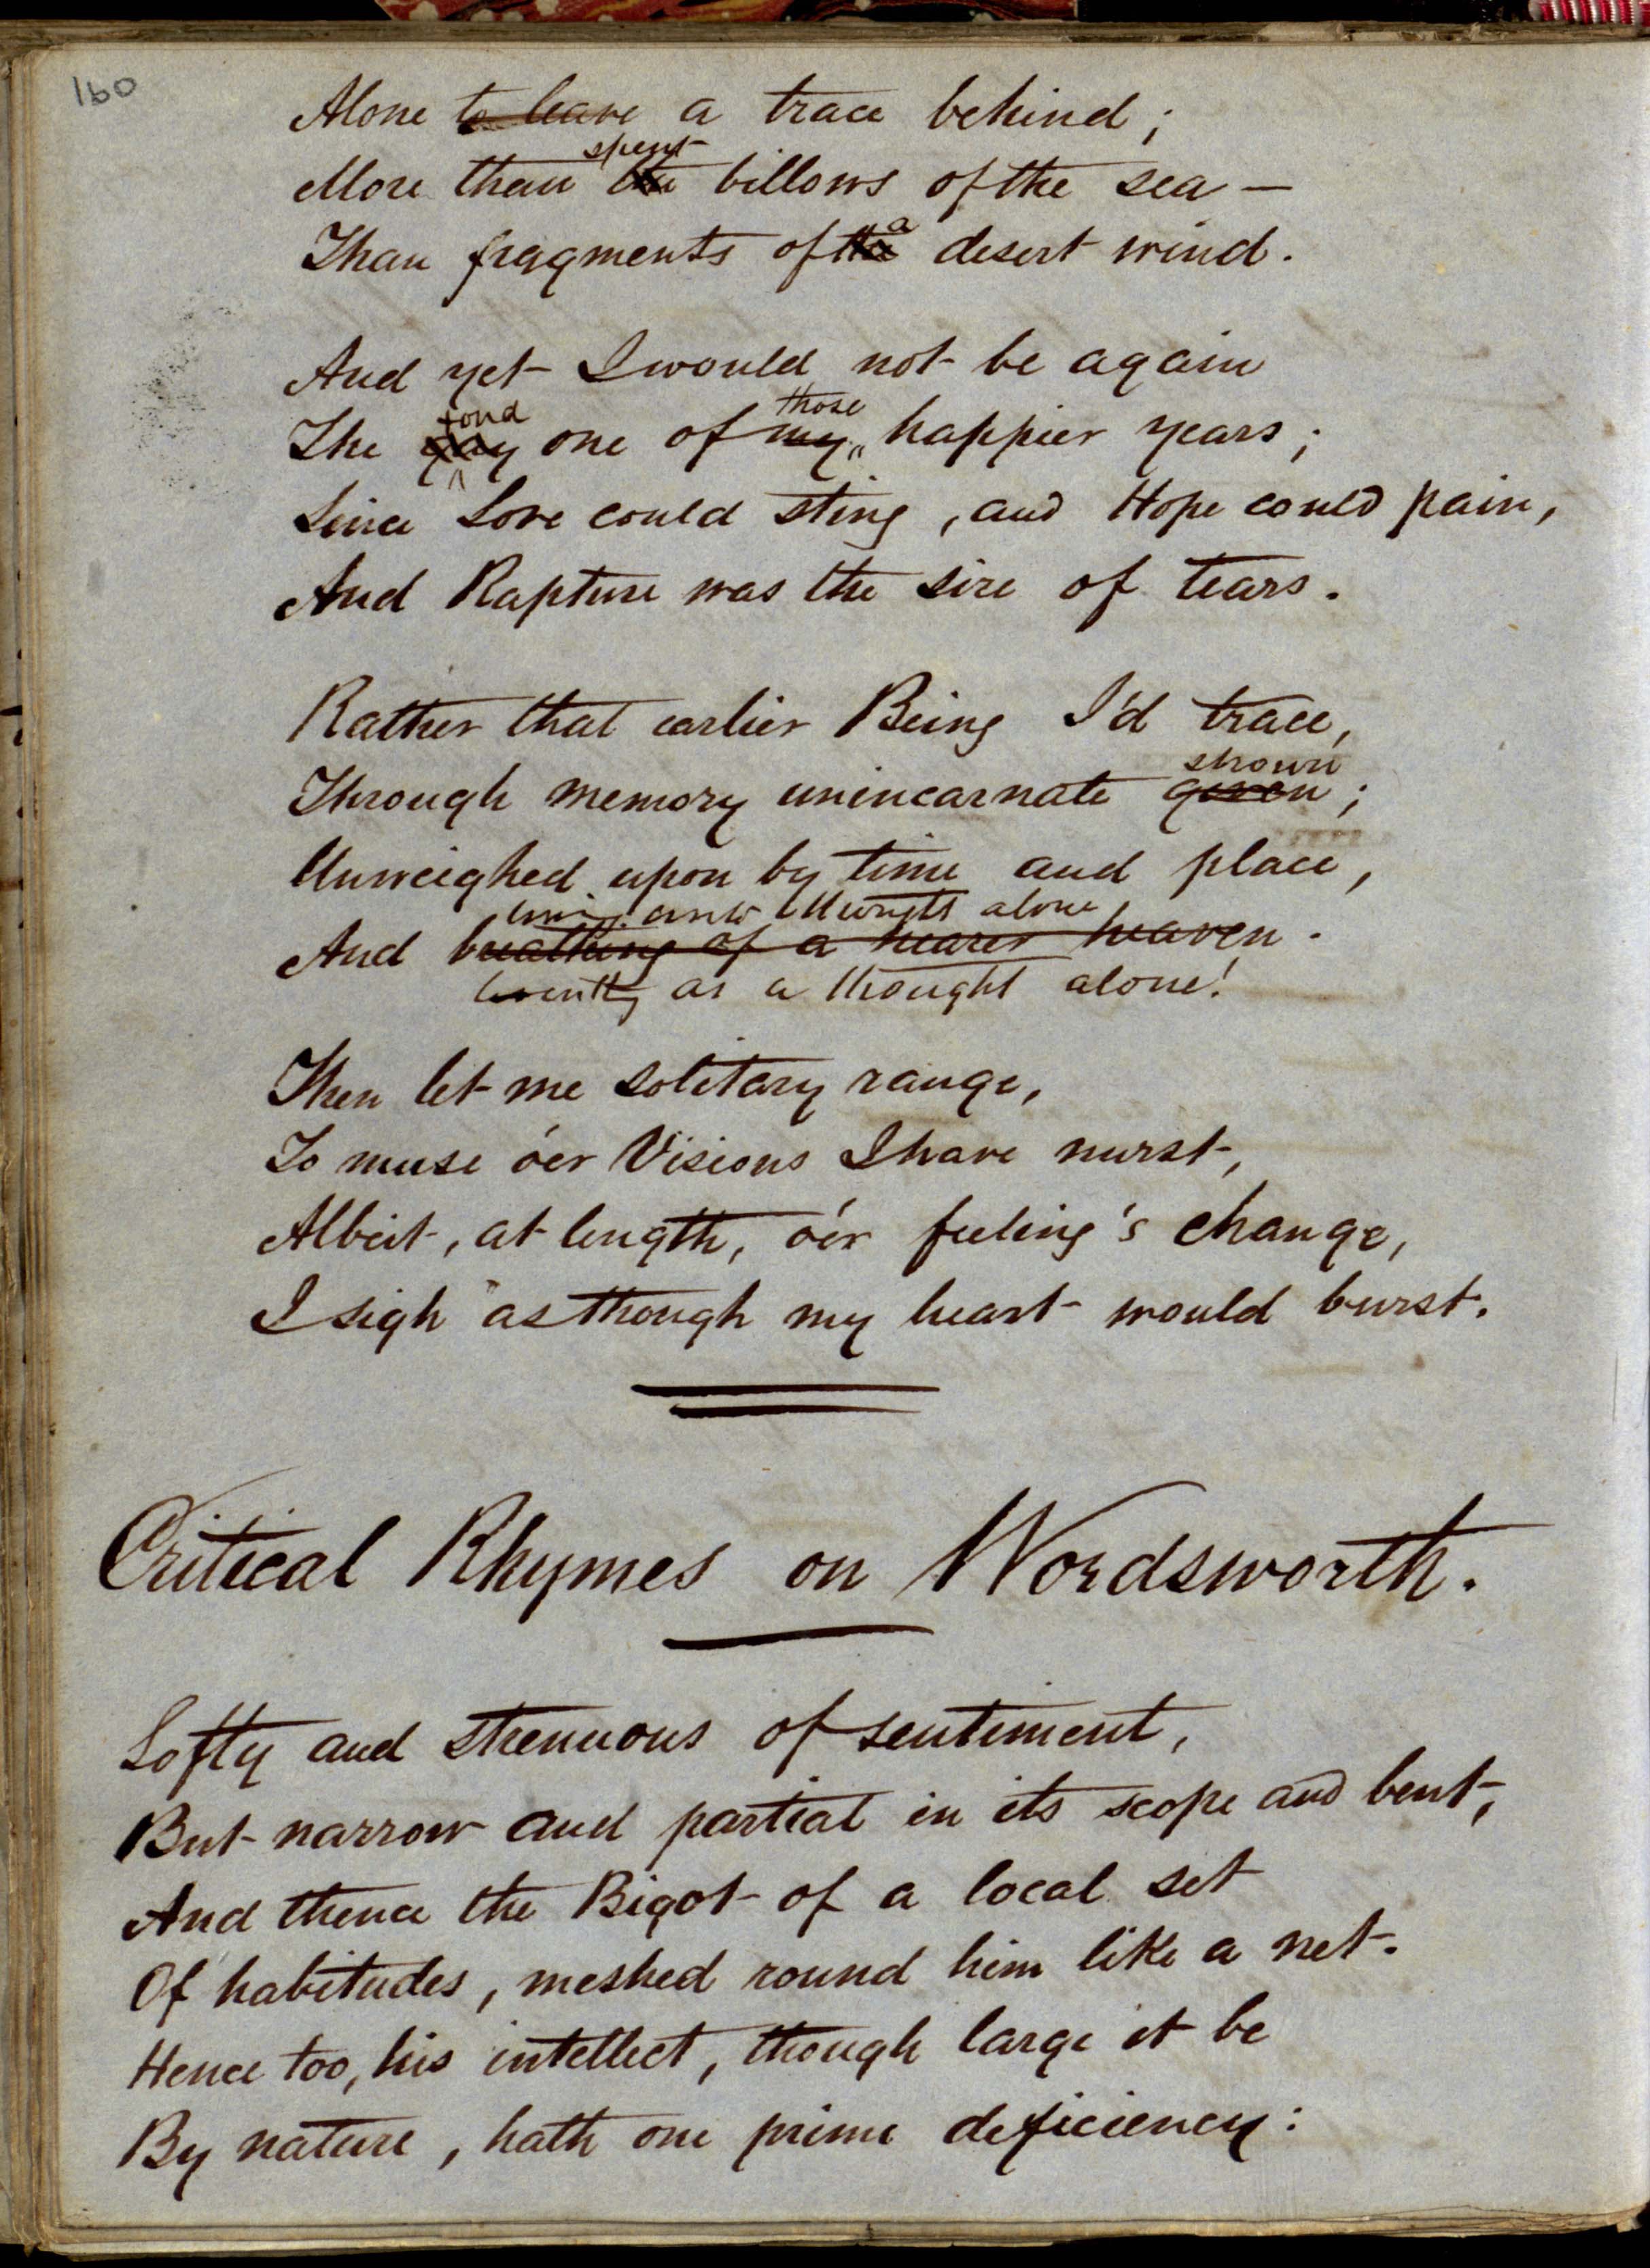 160
Alone to leave a trace behind;
spent
More than the billows of the sea —
a
Than fragments of the desert wind.
And yet I would not be again
fond those
The gay one of my happier years;
Since Love could sting, and Hope could pain,
And Rapture was the sire of tears.
Rather that earlier Being I'd trace,
shown
Through memory unincarnate given;
Unweighed upon by time and place,
thoughts alone
And breathing of a nearer heaven.
as a thought alone!
Then let me solitary range,
To muse o'er Visions I have nurst,
Albeit, at length, o'er feeling's change,
I sigh as though my heart would burst.
Critical Rhymes on Wordsworth.
Lofty and strenuous of sentiment,
But narrow and partial in its scope and bent,
And thence the Bigot of a local set
Of habitudes, meshed round him like a net.
Hence too, his intellect, though large it be
By nature, hath one prime deficiency: